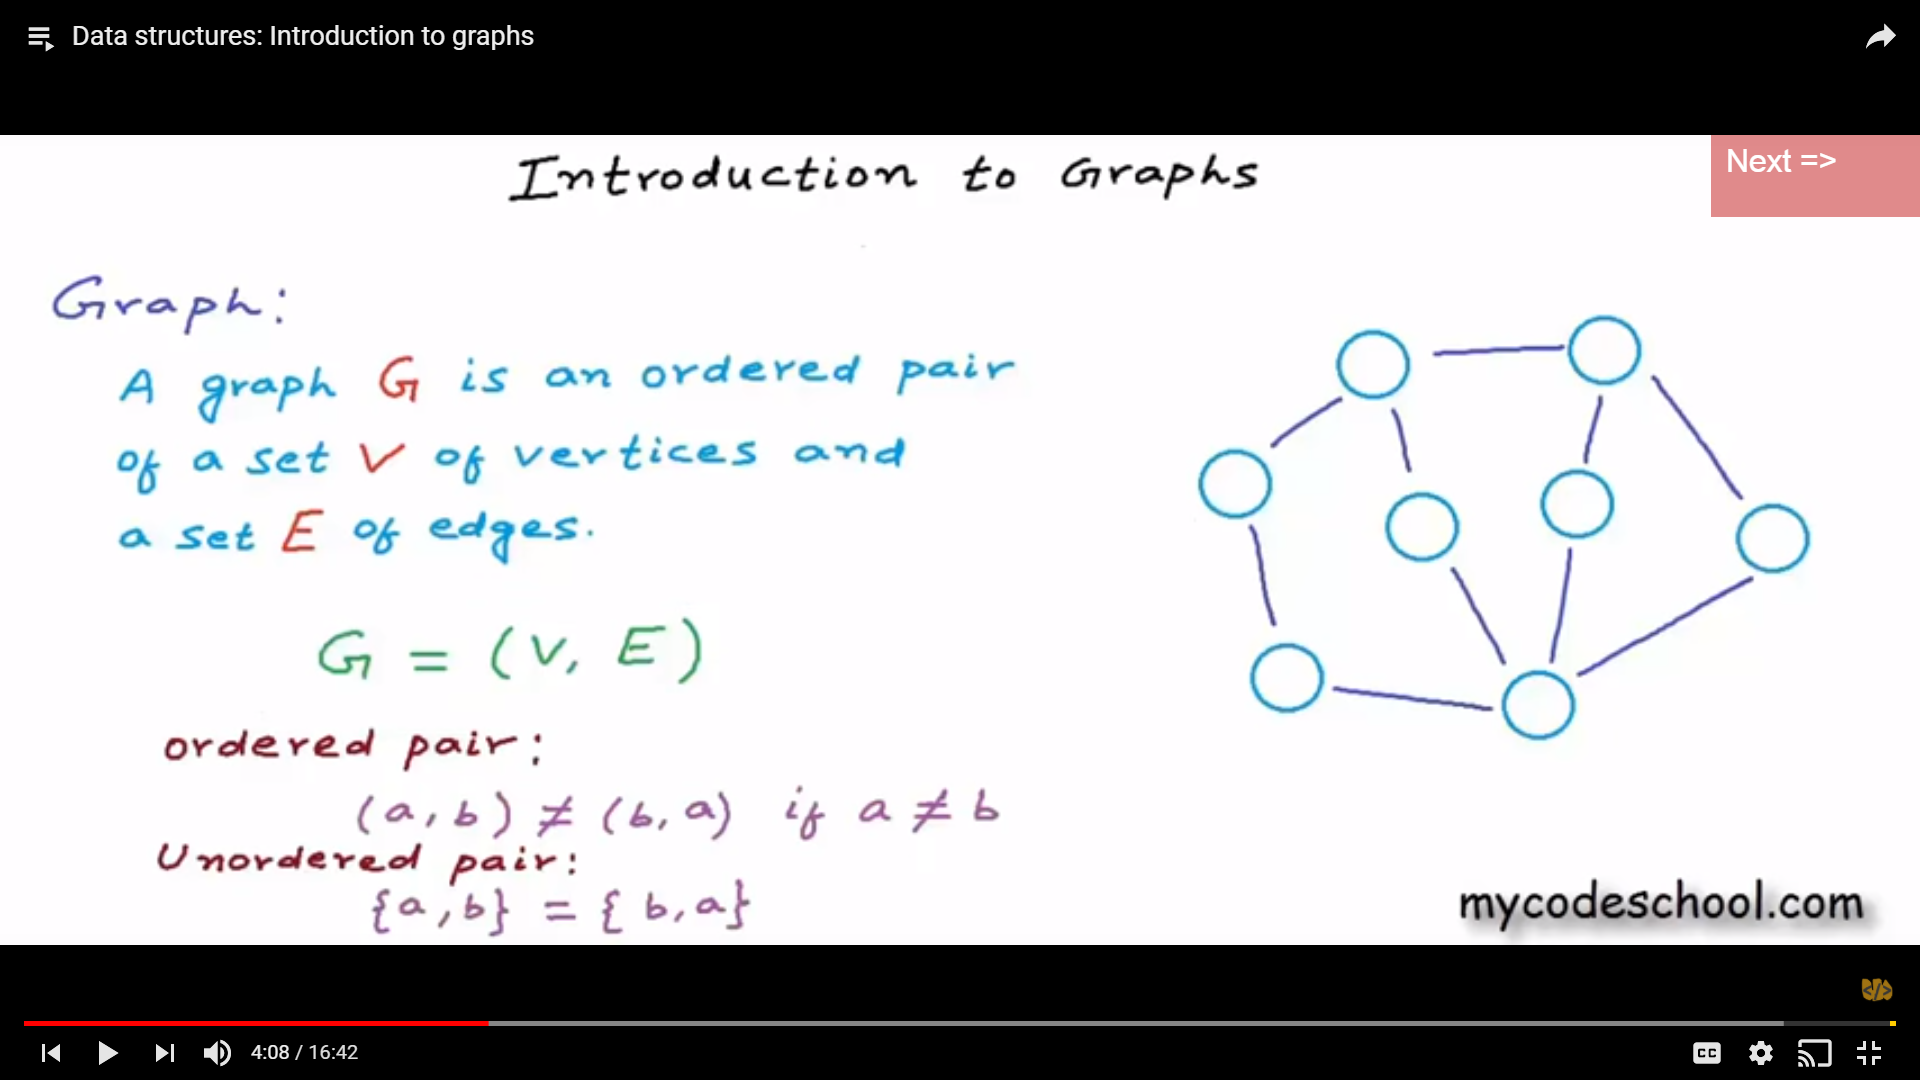 Data structures: Introduction to graphs
Introduction to Graphs
Next =>
Graph:
A graph G is an ordered pair
of a set V of vertices and
a set E of edges.
G = (V, E)
ordered pair:
(a, b) ≠ (b, a) if a ≠ b
Unordered pair:
{a, b} = {b, a}
mycodeschool.com
</>
4:08 / 16:42
CC